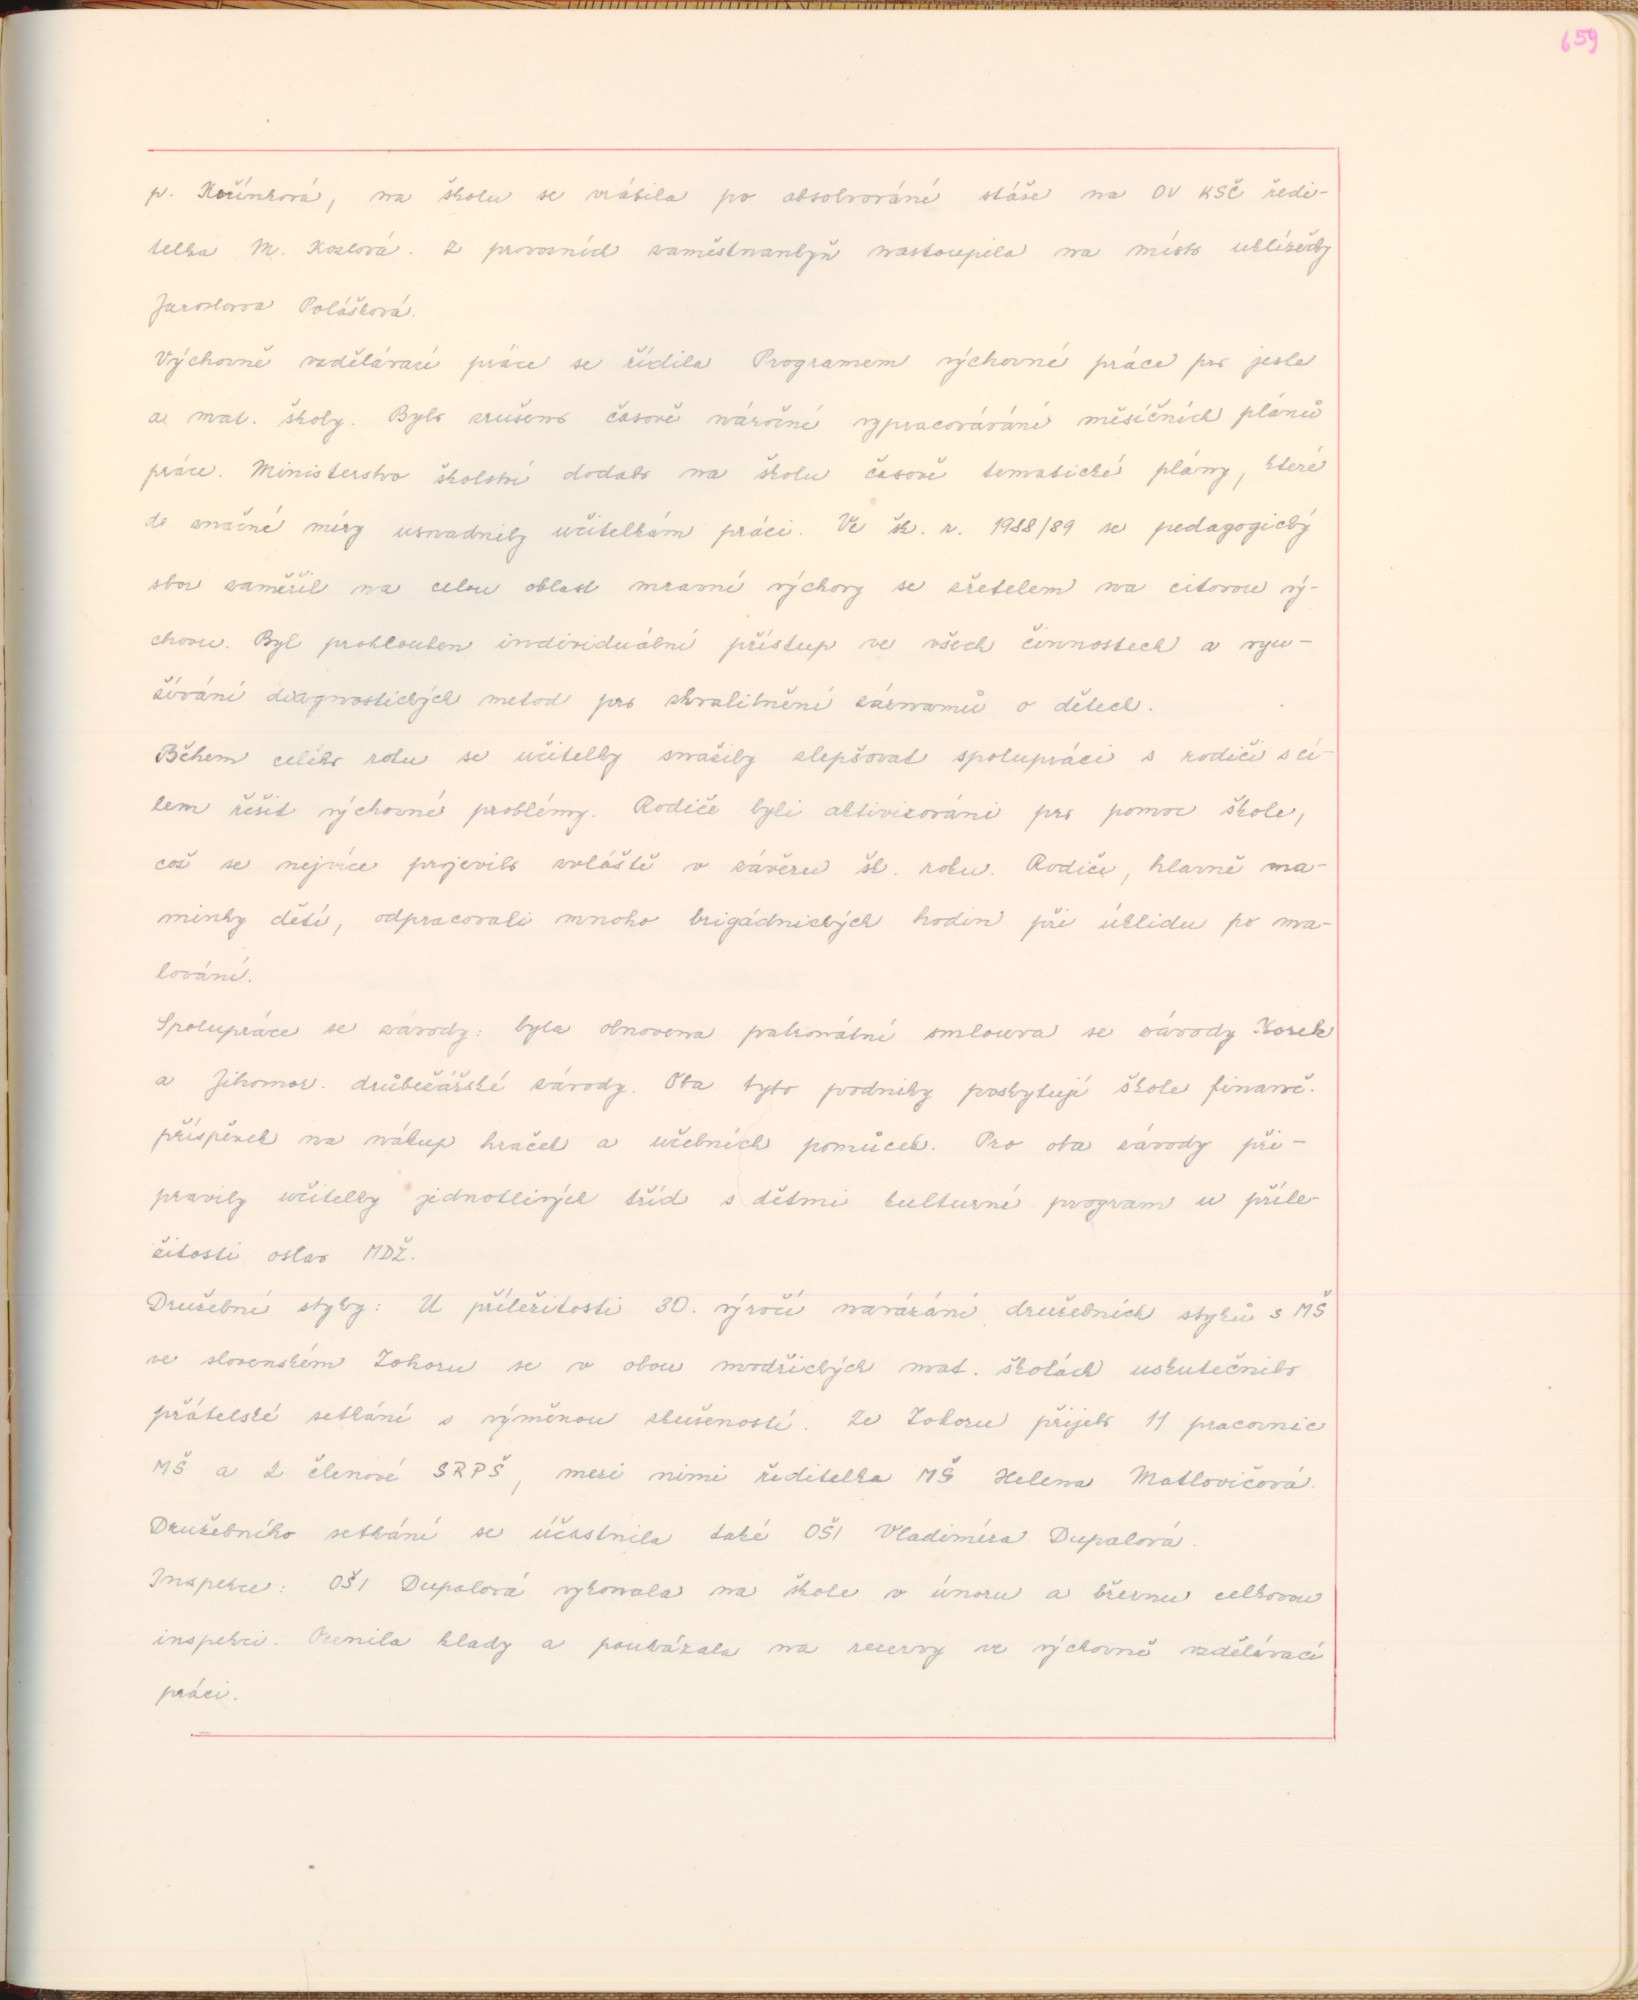 659
p. Kořínková, na školu se vrátila po absolvování stáže na OV KSČ ředi-
telka M. Kozlová. Z provozních zaměstnankyň nastoupila na místo uklízečky
Jaroslava Polášková.
Výchovně vzdělávací práce se řídila Programem výchovné práce pro jesle
a mat. školy. Bylo zrušeno časově náročné vypracovávání měsíčních plánů
práce. Ministerstvo školství dodalo na školu časově tematické plány, které
do značné míry usnadnily učitelkám práci. Ve šk. r. 1988/89 se pedagogický
sbor zaměřil na celou oblast mravní výchovy se zřetelem na citovou vý-
chovu. Byl prohlouben individuální přístup ve všech činnostech a vyu-
žívání diagnostických metod pro zkvalitnění záznamů o dětech.
Během celého roku se učitelky snažily zlepšovat spolupráci s rodiči s cí-
lem řešit výchovné problémy. Rodiče byli aktivizováni pro pomoc škole,
což se nejvíce projevilo zvláště v závěru šk. roku. Rodiče, hlavně ma-
minky dětí, odpracovali mnoho brigádnických hodin při úklidu po ma-
lování.
Spolupráce se závody: byla obnovena patronátní smlouva se závody Korek
a Jihomor. drůbežářské závody. Oba tyto podniky poskytují škole finanč.
příspěvek na nákup hraček a učebních pomůcek. Pro oba závody při-
pravily učitelky jednotlivých tříd s dětmi kulturní program u příle-
žitosti oslav MDŽ.
Družební styky: U příležitosti 30. výročí navázání družebních styků s MŠ
ve slovenském Zohoru se v obou modřických mat. školách uskutečnilo
přátelské setkání s výměnou zkušeností. Ze Zohoru přijelo 11 pracovnic
MŠ a 2 členové SRPŠ, mezi nimi ředitelka MŠ Helena Matlovičová.
Družebního setkání se účastnila také OŠI Vladimíra Dupalová.
Inspekce: OŠI Dupalová vykonala na škole v únoru a březnu celkovou
inspekci. Ocenila klady a poukázala na rezervy ve výchovně vzdělávací
práci.